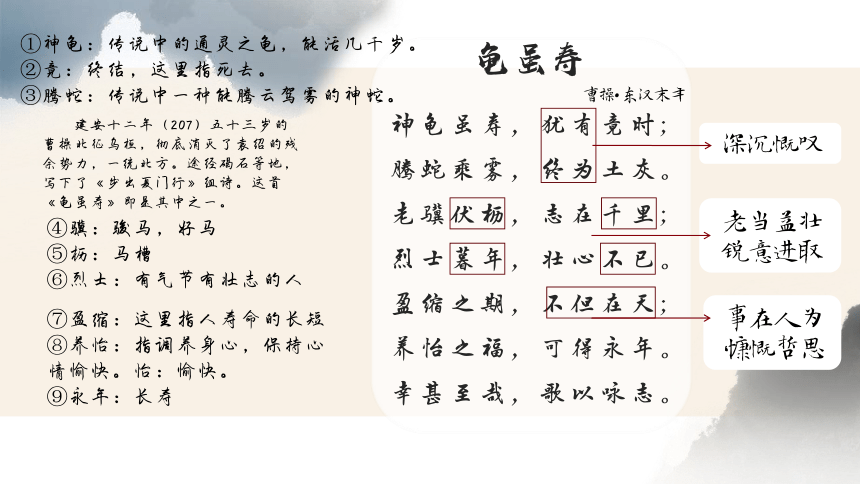 ①神龟：传说中的通灵之龟，能活几千岁。
②竟：终结，这里指死去。
③腾蛇：传说中一种能腾云驾雾的神蛇。
建安十二年（207）五十三岁的
曹操北征乌桓，彻底消灭了袁绍的残
余势力，一统北方。途径碣石等地，
写下了《步出夏门行》组诗。这首
《龟虽寿》即是其中之一。
④骥：骏马，好马
⑤枥：马槽
⑥烈士：有气节有壮志的人
⑦盈缩：这里指人寿命的长短
⑧养怡：指调养身心，保持心
情愉快。怡：愉快。
⑨永年：长寿
龟虽寿
曹操•东汉末年
神龟虽寿，犹有竟时；
腾蛇乘雾，终为土灰。
老骥伏枥，志在千里；
烈士暮年，壮心不已。
盈缩之期，不但在天；
养怡之福，可得永年。
幸甚至哉，歌以咏志。
深沉慨叹
老当益壮
锐意进取
事在人为
慷慨哲思